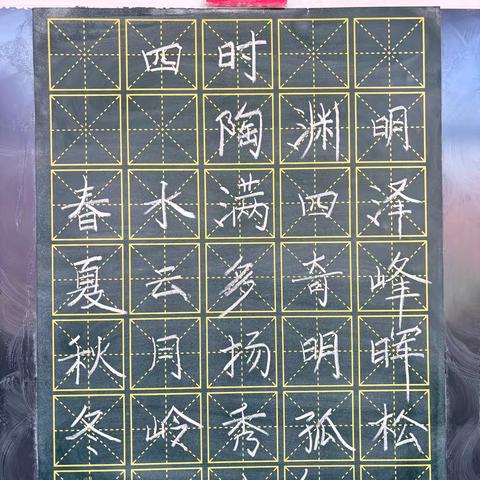 四时
陶渊明
春水满四泽
夏云多奇峰
秋月扬明晖
冬岭秀孤松